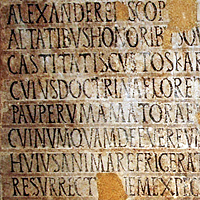 ALEXANDERE SCOP
ALTATIBVSHONORIB DOM
CASTITATISCVSTOSKAR
CVIVSDOCTRINAFLORE
PAVPERVMAMATORAE
CVINVMQVAMDEFVEREV
HVIVSANIMAREFRIGERA
RESVRRECT IEMEXPEC